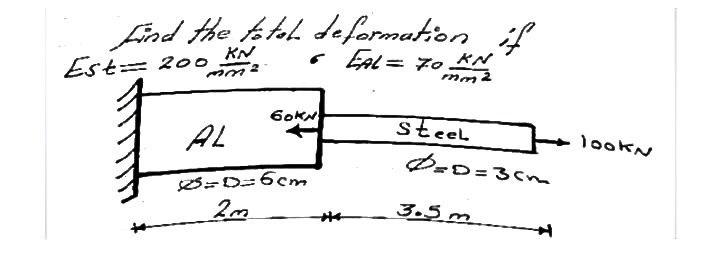 Find the total deformation if
Est = 200 KN/mm² , EAL = 70 KN/mm²
60KN
AL
Steel
100KN
Ø=D=6cm
Ø=D=3cm
2m
3.5m